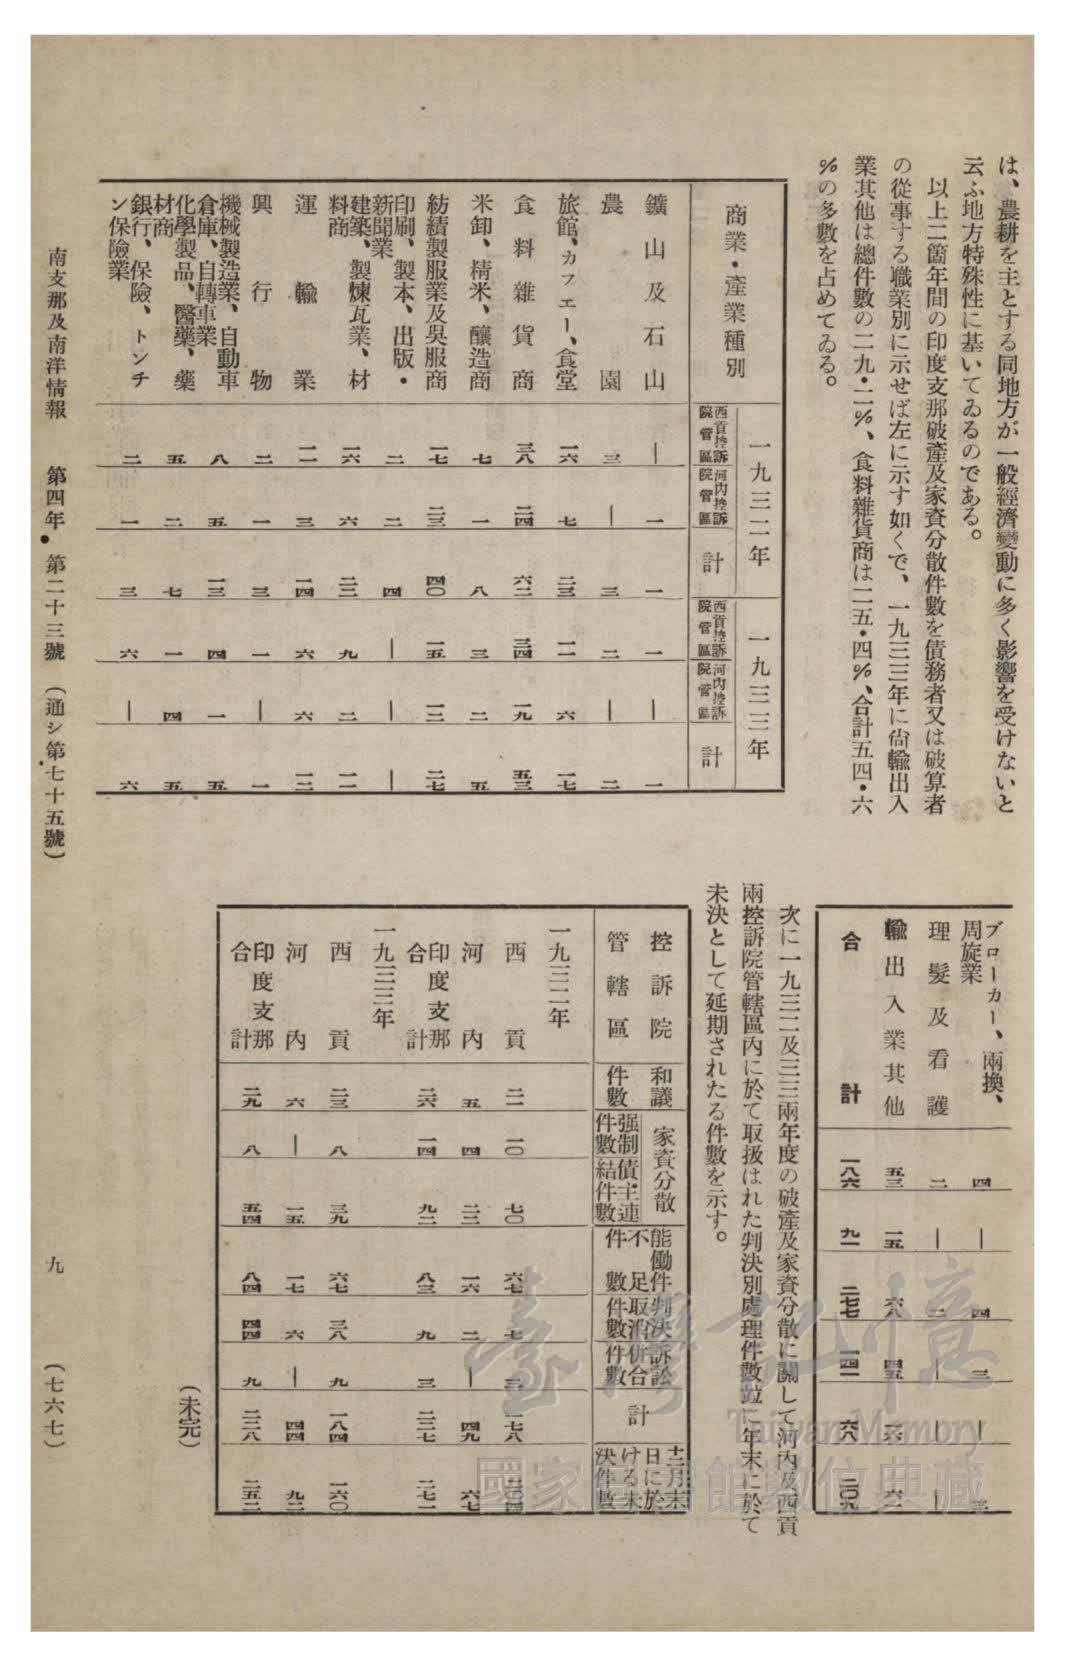 は、農耕を主とする同地方が一般經濟變動に多く影響を受けないと
云ふ地方特殊性に基いてゐるのである。
以上二箇年間の印度支那破產及家資分散件數を債務者又は破算者
の從事する職業別に示せば左に示す如くで、一九三三年に尙輸出入
業其他は總件數の二九・二%、食料雜貨商は二五・四%、合計五四・六
%の多數を占めてゐる。
商業・產業種別 一九三二年 一九三三年
西貢控訴院管區 河內控訴院管區 計 西貢控訴院管區 河內控訴院管區 計
鑛山及石山 — 一 一 一 — 一
農園 三 — 三 二 — 二
旅館、カフエー、食堂 一六 七 二三 一一 六 一七
食料雜貨商 三八 二四 六二 三四 一九 五三
米卸、精米、釀造商 七 一 八 三 二 五
紡績製服業及吳服商 一七 二三 四〇 一五 一二 二七
印刷、製本、出版・
新聞業 二 二 四 — — —
建築、製煉瓦業、材
料商 一六 六 二二 九 二 一一
運輸業 一一 三 一四 六 六 一二
興行物 二 一 三 一 — 一
機械製造業、自動車
倉庫、自轉車業 八 五 一三 四 一 五
化學製品、醫藥、藥
材商 五 二 七 一 四 五
銀行、保險、トンチ
ン保險業 二 一 三 六 — 六
ブローカー、兩換、
周旋業 四 — 四 三 — 三
理髮及看護 二 — 二 — — —
輸出入業其他 五三 一五 六八 四五 一六 六一
合計 一八六 九一 二七七 一四一 六八 二〇九
次に一九三二及三三兩年度の破產及家資分散に關して河內及西貢
兩控訴院管轄區內に於て取扱はれた判決別處理件數竝に年末に於て
未決として延期されたる件數を示す。
控訴院管轄區 和議件數 家資分散 强制件數 債主連結件數 能働不足件件數 判決取消件數 訴訟併合件數 計 十二月末日に於ける未決件數
一九三二年
西貢 二一 一〇 七〇 六七 七 三 一七八 二〇四
河內 五 四 二二 一六 二 — 四九 六七
印度支那合計 二六 一四 九二 八三 九 三 二二七 二七一
一九三三年
西貢 二三 八 三九 六七 三八 九 一八四 一六〇
河內 六 — 一五 一七 六 — 四四 九二
印度支那合計 二九 八 五四 八四 四四 九 二二八 二五二
(未完)
南支那及南洋情報 第四年・第二十三號 (通シ第七十五號) 九 (七六七)
臺灣記憶
Taiwan Memory
國家圖書館數位典藏